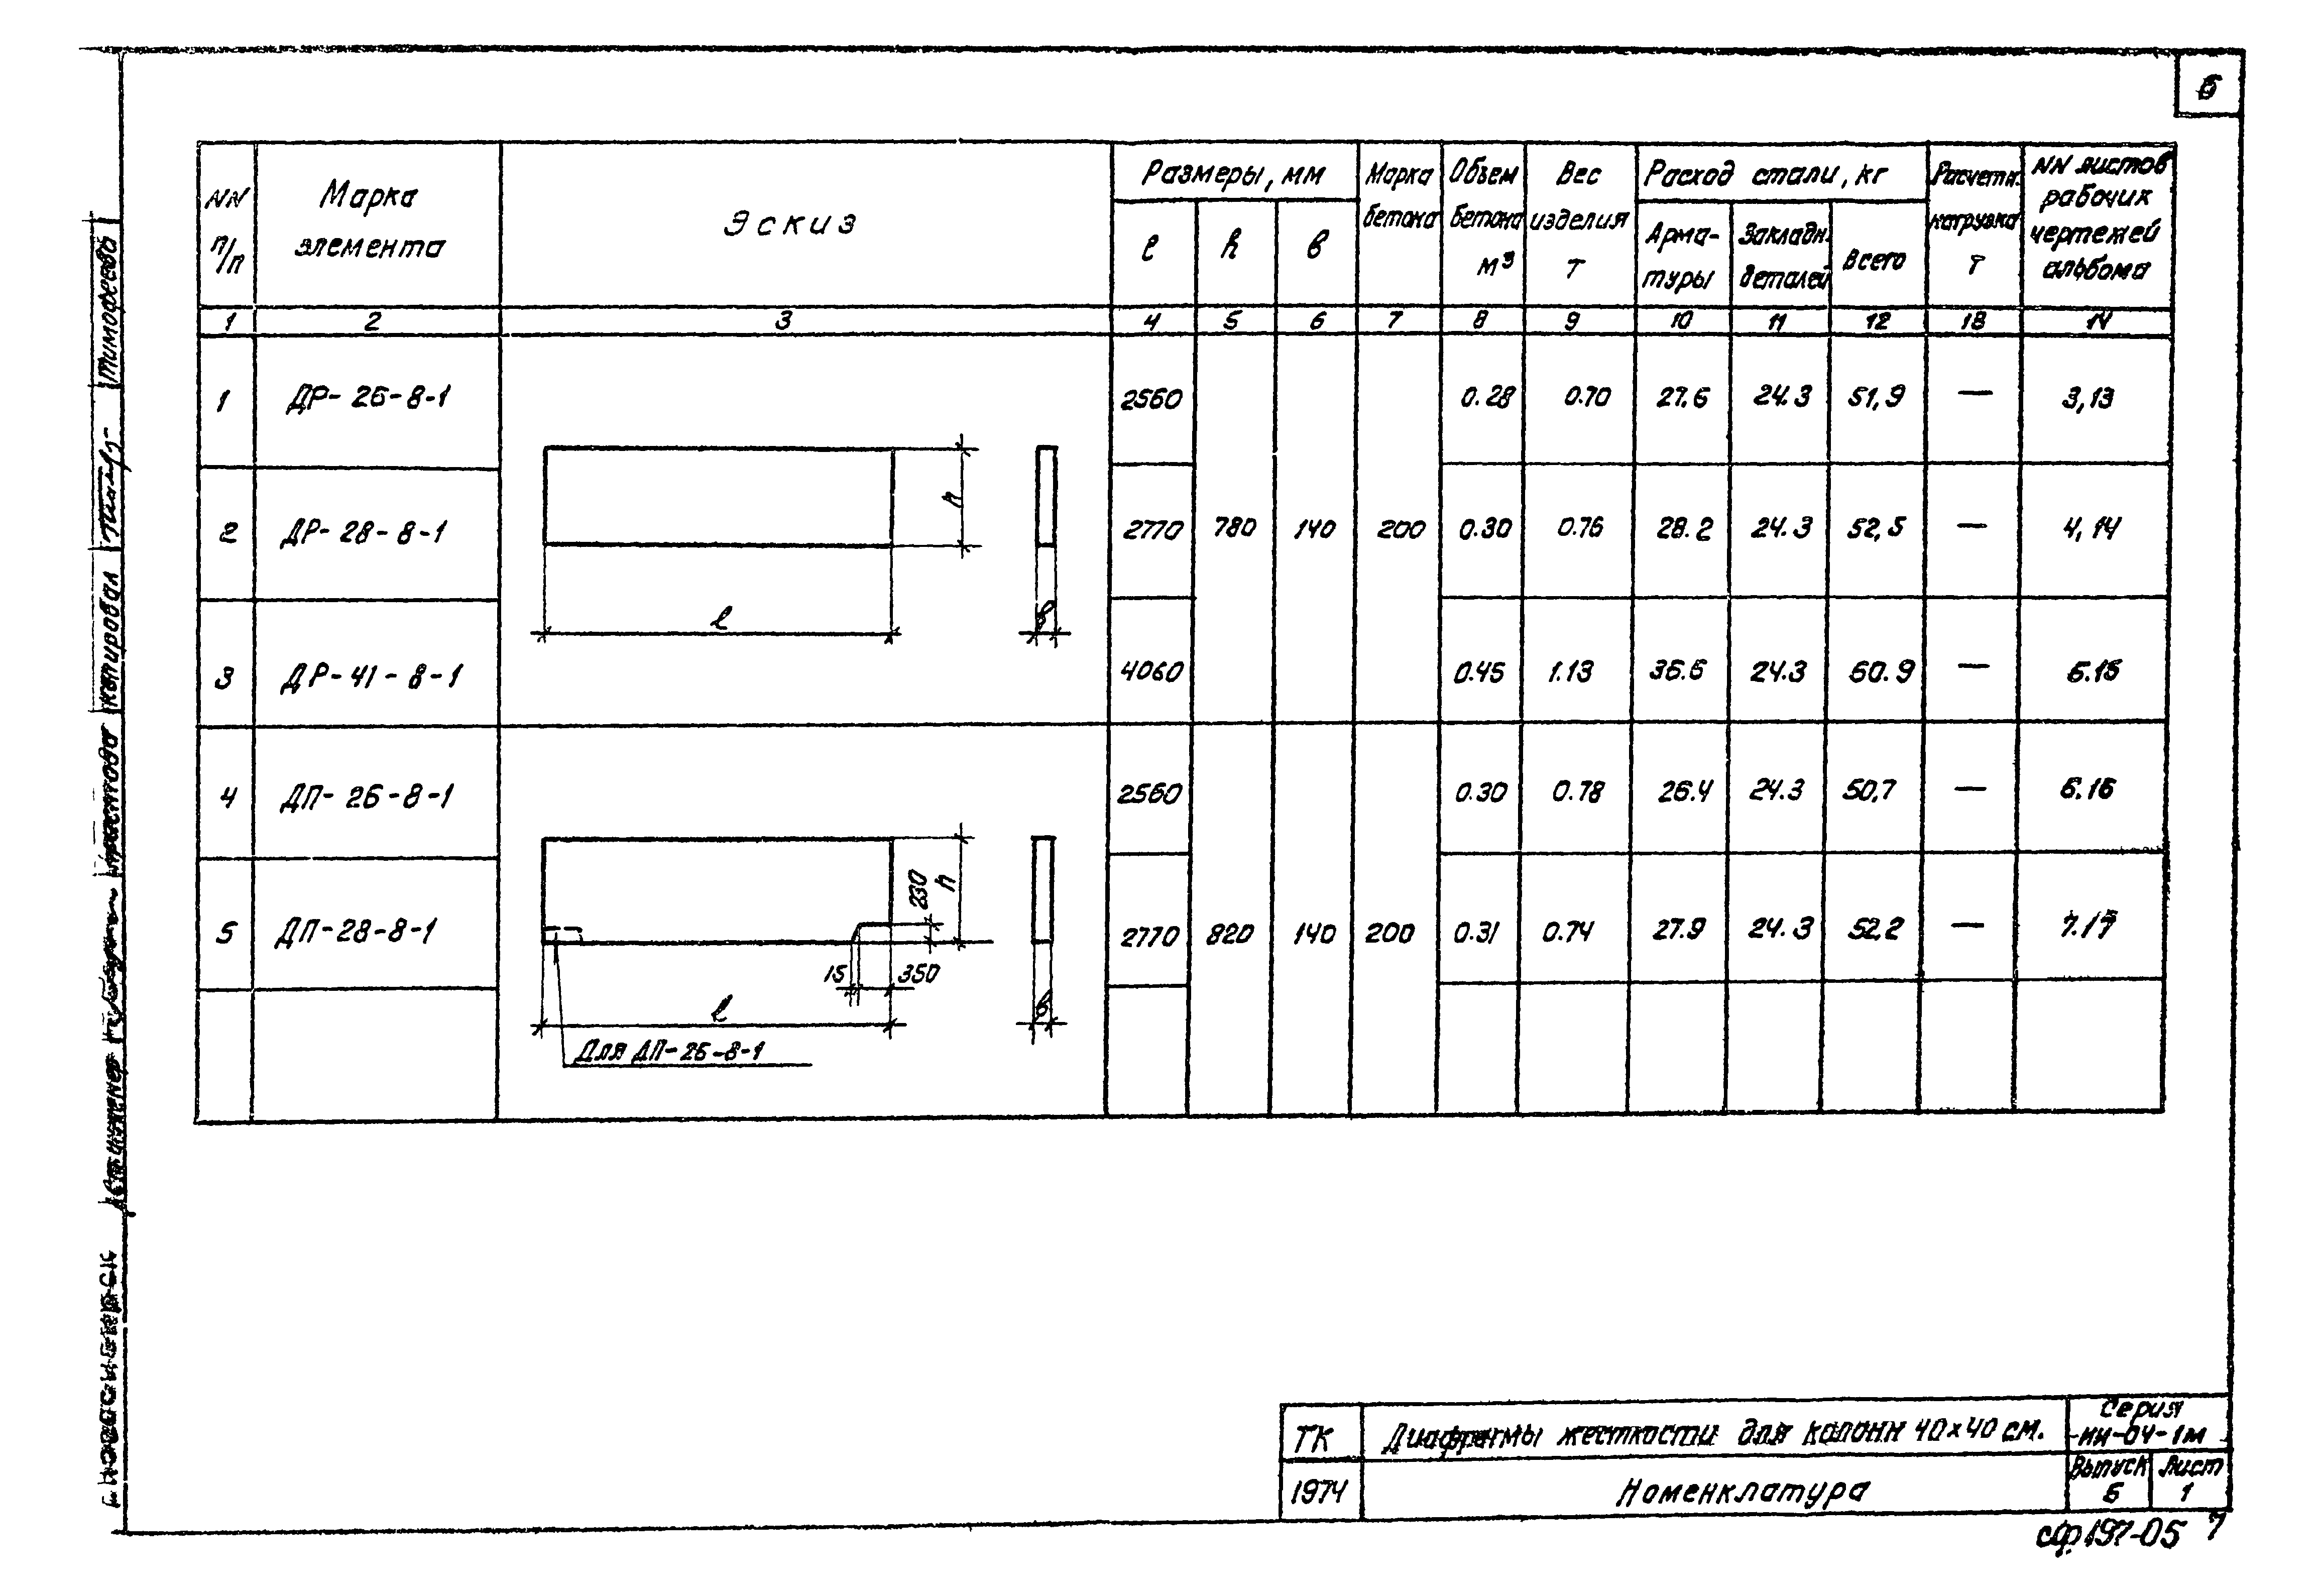 6
NN п/п
Марка элемента
Эскиз
Размеры, мм
ℓ
h
в
Марка бетона
Объем бетона м³
Вес изделия т
Расход стали, кг
Арма-
туры
Закладн. деталей
Всего
Расчетн. нагрузка т
NN листов рабочих чертежей альбома
1 2 3 4 5 6 7 8 9 10 11 12 13 14
1 ДР-26-8-1 2560 0.28 0.70 27.6 24.3 51,9 — 3,13
2 ДР-28-8-1 2770 780 140 200 0.30 0.76 28.2 24.3 52,5 — 4,14
3 ДР-41-8-1 4060 0.45 1.13 36.6 24.3 60.9 — 5.15
h
ℓ
в
4 ДП-26-8-1 2560 0.30 0.78 26.4 24.3 50,7 — 6.16
5 ДП-28-8-1 2770 820 140 200 0.31 0.74 27.9 24.3 52.2 — 7.17
230
h
15
350
ℓ
в
Для ДП-26-8-1
Тимофеева
Копировал
Ст. инженер
г. Новосибирск
ТК
Диафрагмы жесткости для колонн 40×40 см.
Серия
ИИ-04-1м
1974
Номенклатура
Выпуск
6
Лист
1
сф 197-05 7